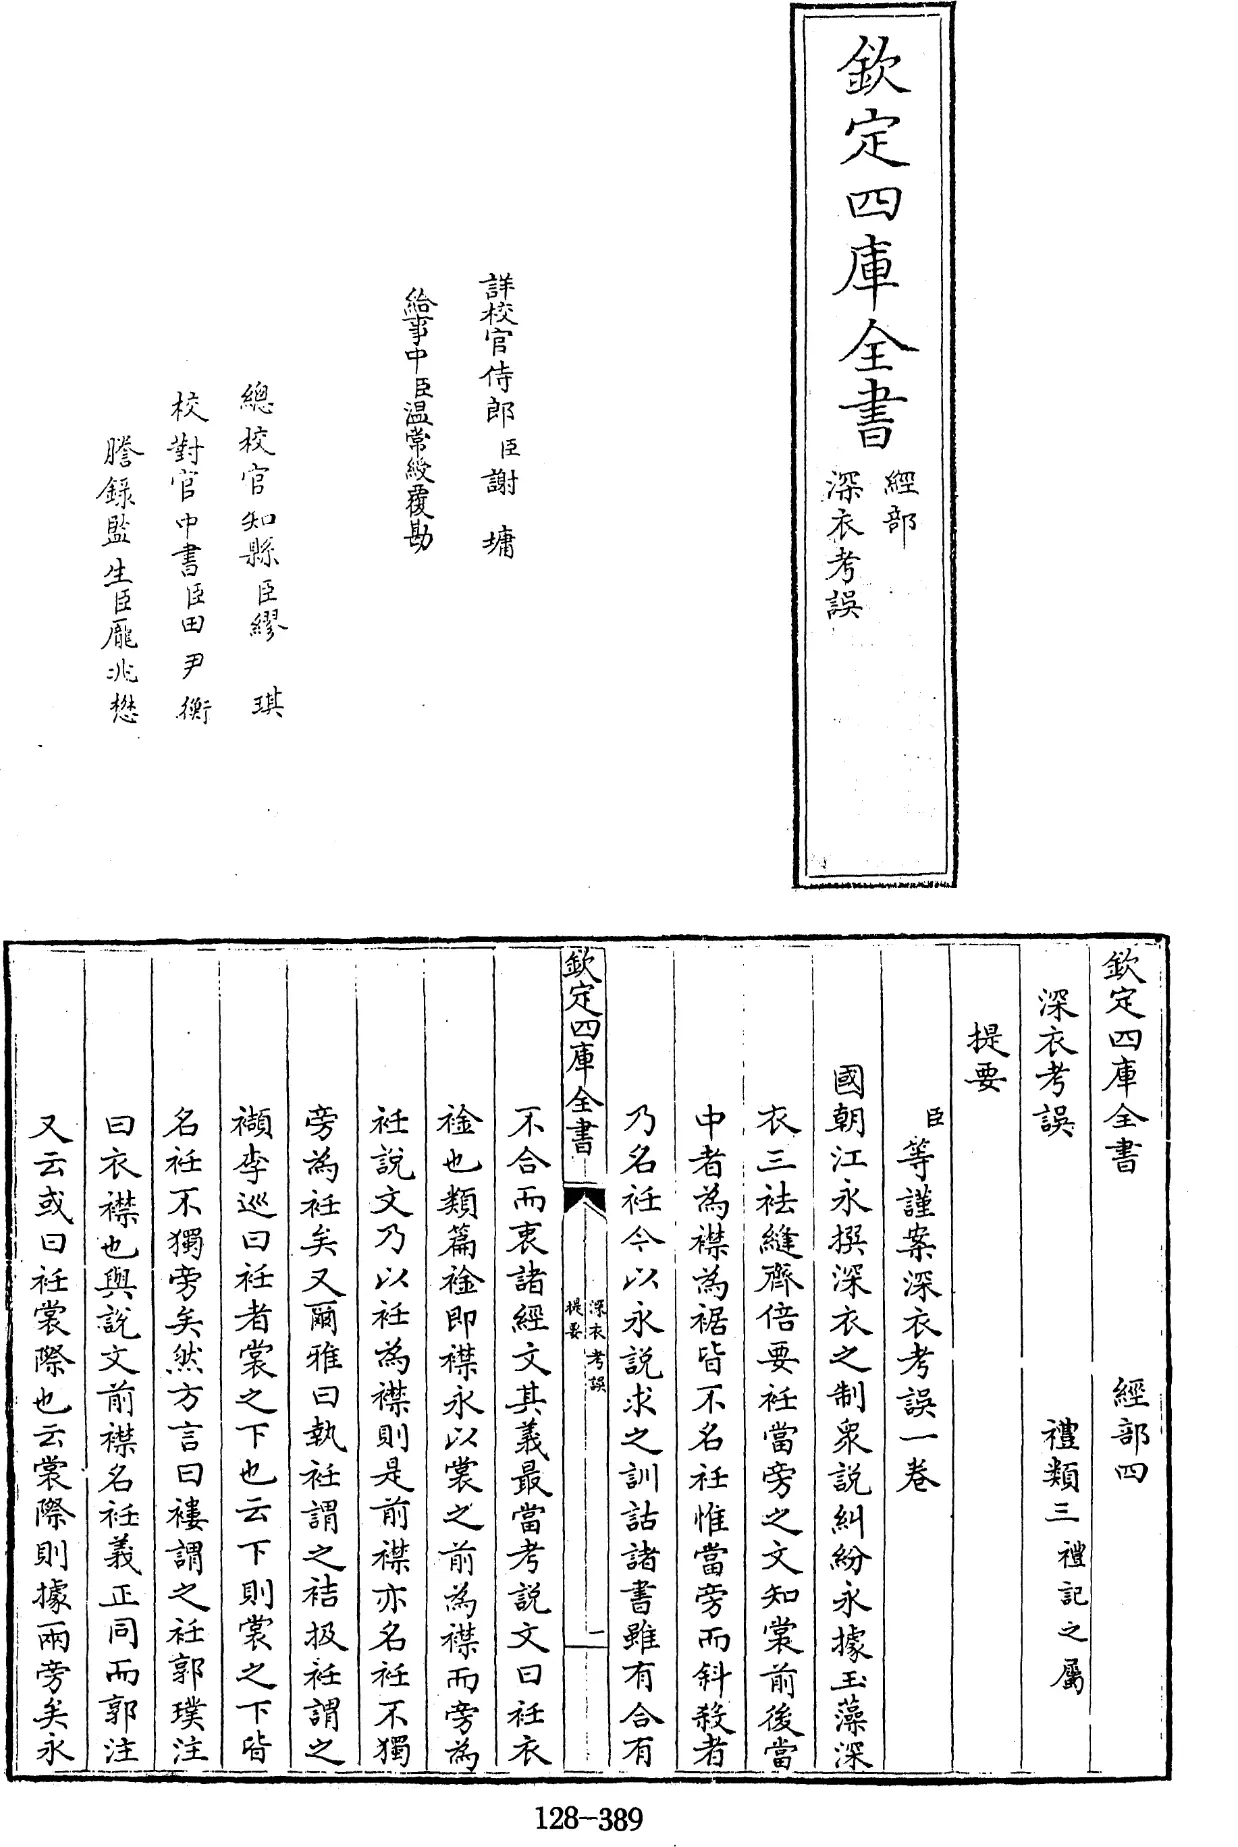 欽定四庫全書
經部
深衣考誤
詳校官侍郎臣謝墉
給事中臣温常綬覆勘
總校官知縣臣繆琪
校對官中書臣田尹衡
謄錄監生臣龐兆懋
欽定四庫全書 經部四
深衣考誤 禮類三禮記之屬
提要
臣等謹案深衣考誤一卷
國朝江永撰深衣之制衆説糾紛永據玉藻深
衣三袪縫齊倍要衽當旁之文知裳前後當
中者為襟為裾皆不名衽惟當旁而斜殺者
乃名衽今以永説求之訓詁諸書雖有合有
欽定四庫全書
深衣考誤
提要
一
不合而衷諸經文其義最當考説文曰衽衣
䘳也類篇䘳即襟永以裳之前為襟而旁為
衽説文乃以衽為襟則是前襟亦名衽不獨
旁為衽矣又爾雅曰執衽謂之袺扱衽謂之
襭李巡曰衽者裳之下也云下則裳之下皆
名衽不獨旁矣然方言曰褸謂之衽郭璞注
曰衣襟也與説文前襟名衽義正同而郭注
又云或曰衽裳際也云裳際則據兩旁矣永
128-389